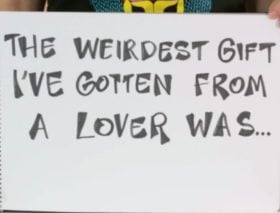 THE WEIRDEST GIFT
I'VE GOTTEN FROM
A LOVER WAS...